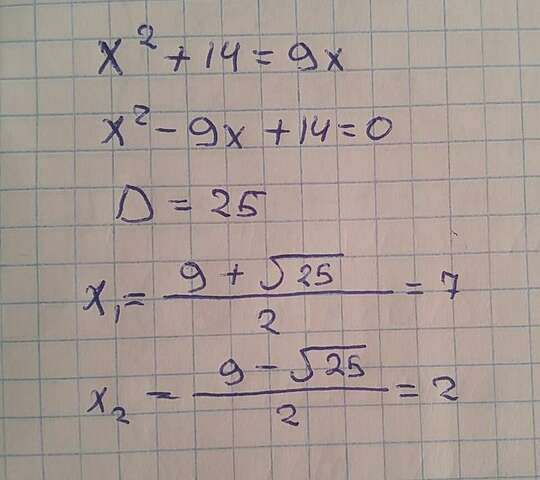 x² + 14 = 9x
x² - 9x + 14 = 0
D = 25
x₁ = (9 + √25)/2 = 7
x₂ = (9 - √25)/2 = 2